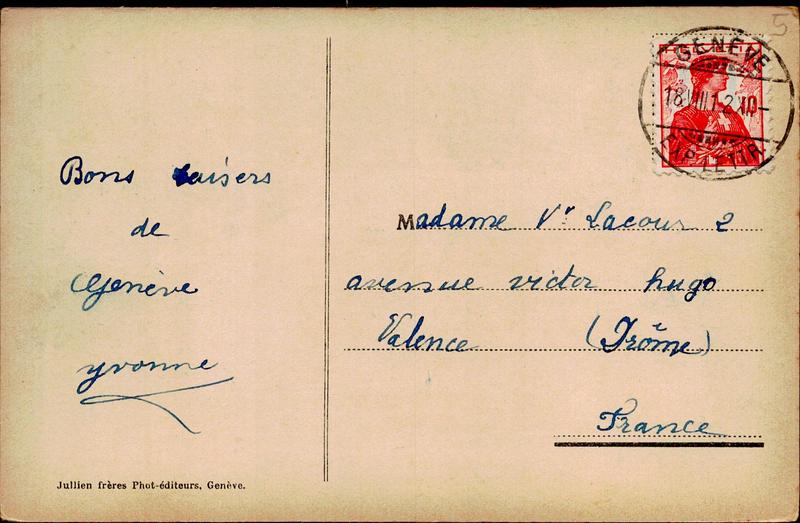 5
GENÈVE
18.VIII.12 XII-
EXP. LETTR.
Bons baisers
de
Genève
yvonne
Madame Vr Lacour 2
avenue victor hugo
Valence (Drôme)
France
Jullien frères Phot-éditeurs, Genève.